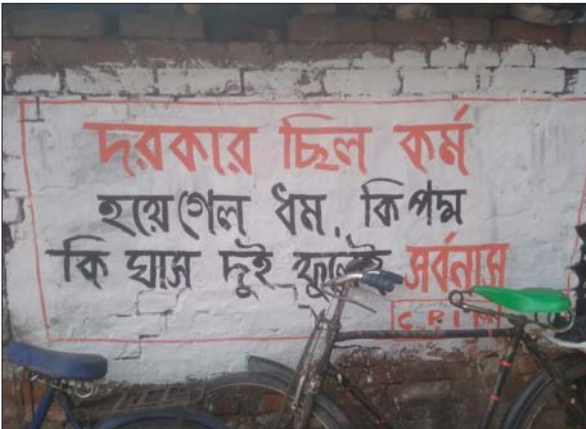 দরকার ছিল কর্ম
হয়ে গেল ধম, কি পদ্ম
কি ঘাস দুই ফুলেই সর্বনাস